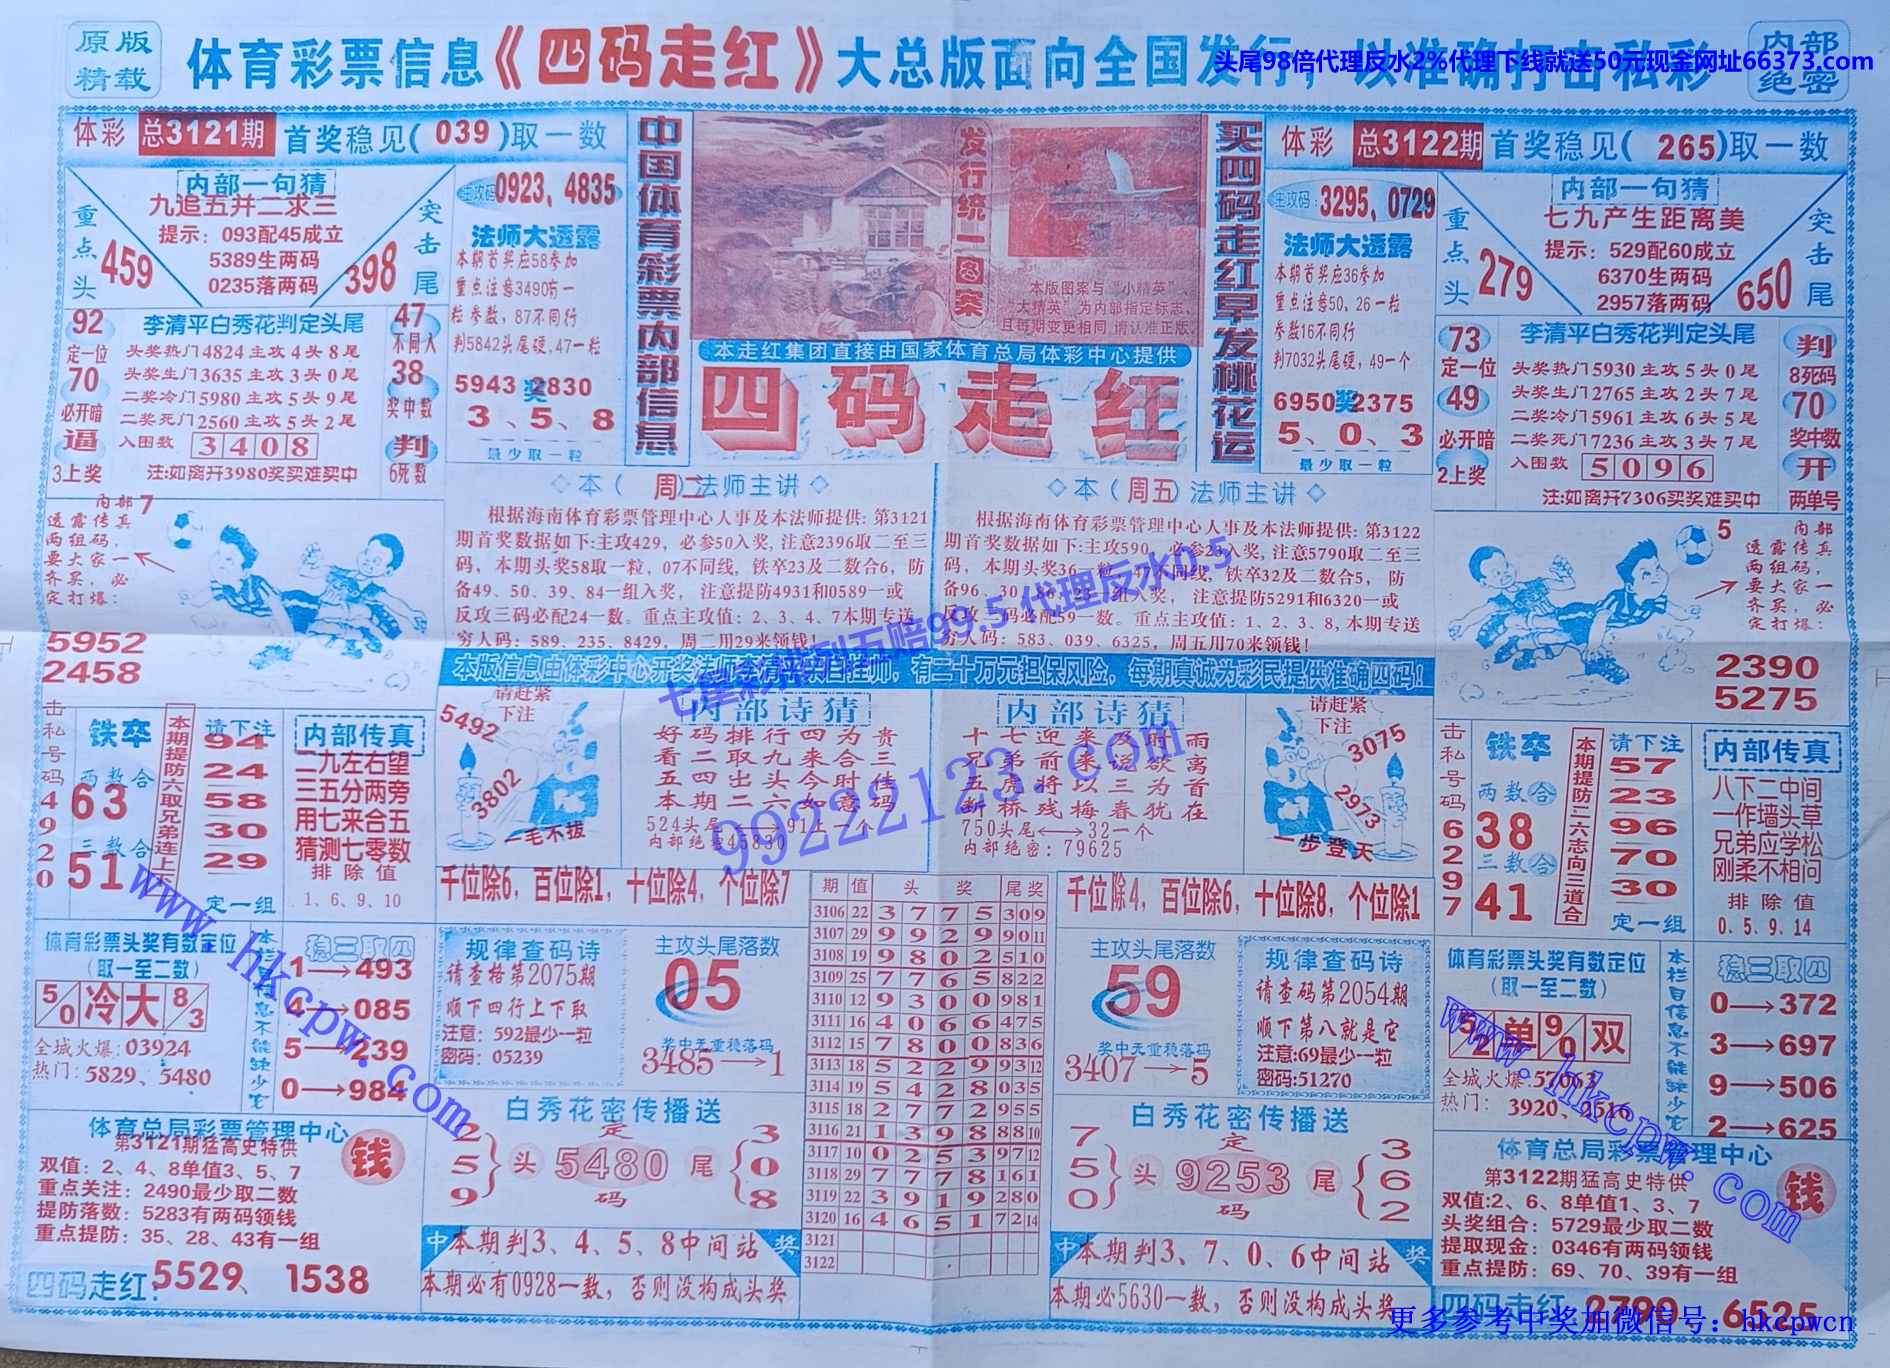 原版
精载
体育彩票信息《四码走红》大总版面向全国发行，以准确打击私彩
内部
绝密
头尾98倍代理反水2%代理下线就送50元现金网址66373.com
体彩 总3121期 首奖稳见(039)取一数
内部一句猜
九追五并二求三
提示：093配45成立
5389生两码
0235落两码
重点头 459
突击尾 398
主攻码 0923、4835
法师大透露
本期首奖应58参加
重点注意3490有一
粒参数，87不同行
判5842头尾硬,47一粒
5943奖2830
3、5、8
最少取一粒
92
定一位
70
必开暗
逼
3上奖
李清平白秀花判定头尾
头奖热门4824主攻4头8尾
头奖生门3635主攻3头0尾
二奖冷门5980主攻5头9尾
二奖死门2560主攻5头2尾
入围数 3408
注:如离开3980奖买难买中
47
不同入
38
奖中数
判
6死数
中国体育彩票内部信息
发行统一图案
本版图案与“小精英”、
“大精英”为内部指定标志、
且每期变更相同,请认准正版。
本走红集团直接由国家体育总局体彩中心提供
四码走红
买四码走红早发桃花运
体彩 总3122期 首奖稳见(265)取一数
主攻码：3295、0729
法师大透露
本期首奖应36参加
重点注意50、26一粒
参数16不同行
判7032头尾硬，49一个
6950奖2375
5、0、3
最少取一粒
内部一句猜
七九产生距离美
提示：529配60成立
6370生两码
2957落两码
重点头 279
突击尾 650
73
定一位
49
必开暗
2上奖
李清平白秀花判定头尾
头奖热门5930主攻5头0尾
头奖生门2765主攻2头7尾
二奖冷门5961主攻6头5尾
二奖死门7236主攻3头7尾
入围数 5096
注:如离开7306买奖难买中
判
8死码
70
奖中数
开
两单号
内部
透露传真
两组码，
要大家一
齐买，必
定打爆：
7
5952
2458
◇本（周二）法师主讲◇
根据海南体育彩票管理中心人事及本法师提供：第3121
期首奖数据如下:主攻429，必参50入奖,注意2396取二至三
码，本期头奖58取一粒，07不同线，铁卒23及二数合6，防
备49、50、39、84一组入奖， 注意提防4931和0589一或
反攻三码必配24一数。重点主攻值：2、3、4、7本期专送
穷人码：589、235、8429，周二用29来领钱！
◇本（周五）法师主讲◇
根据海南体育彩票管理中心人事及本法师提供：第3122
期首奖数据如下:主攻590，必参23入奖,注意5790取二至三
码，本期头奖36一粒，47不同线，铁卒32及二数合5，防
备96、30、86、23一组入奖， 注意提防5291和6320一或
反攻三码必配59一数。重点主攻值：1、2、3、8,本期专送
穷人码：583、039、6325，周五用70来领钱！
内部
透露传真
两组码，
要大家一
齐买，必
定打爆：
5
2390
5275
七星彩排列五赔99.5代理反水0.5
99222123.com
请赶紧
下注
5492
3802
一毛不拔
内部诗猜
好码排行四为贵
看二取九来合三
五四出头今时佳
本期二六如意码
内部绝密45830
内部诗猜
十七迎来及时雨
兄弟前来说欲离
五虎将以三为首
断桥残梅春犹在
750头尾⟷32一个
内部绝密：79625
请赶紧
下注
3075
2973
一步登天
击私号码4920
铁卒
两数合
63
三数合
51
本期提防六取兄弟连上六
请下注
94
24
58
30
29
定一组
内部传真
二九左右望
三五分两旁
用七来合五
猜测七零数
排除值
1、6、9、10
千位除6，百位除1，十位除4，个位除7
千位除4，百位除6，十位除8，个位除1
击私号码6297
铁卒
两数合
38
三数合
41
本期提防二六志向三道合
请下注
57
23
96
70
30
定一组
内部传真
八下二中间
一作墙头草
兄弟应学松
刚柔不相问
排除值
0、5、9、14
体育彩票头奖有数定位
(取一至二数)
5/0 冷 大 8/3
全城火爆:03924
热门：5829、5480
稳三取四
1→493
4→085
5→239
0→984
规律查码诗
请查格第2075期
顺下四行上下取
注意：592最少一粒
密码：05239
主攻头尾落数
05
奖中无重稳落码
3485→1
期 值 头奖 尾奖
3106 22 3 7 7 5 3 0 9
3107 29 9 9 2 9 9 0 11
3108 19 9 8 0 2 5 1 0
3109 25 7 7 6 5 8 2 2
3110 12 9 3 0 0 9 8 1
3111 16 4 0 6 6 4 7 5
3112 15 7 8 0 0 8 3 6
3113 18 5 2 2 9 9 3 12
3114 19 5 4 2 8 0 3 5
3115 18 2 7 7 2 9 5 5
3116 21 1 3 9 8 8 8 10
3117 10 0 2 5 3 9 7 12
3118 29 7 7 7 8 1 6 1
3119 22 3 9 1 9 2 8 0
3120 16 4 6 5 1 7 2 14
3121
3122
主攻头尾落数
59
奖中无重稳落码
3407→5
规律查码诗
请查码第2054期
顺下第八就是它
注意:69最少一粒
密码:51270
体育彩票头奖有数定位
(取一至二数)
单 9/0 双
全城火爆:57063
热门：3920、2516
本栏目信息不能缺少它
稳三取四
0→372
3→697
9→506
2→625
www.hkcpw.com
www.hkcpw.com
体育总局彩票管理中心
第3121期猛高史特供
双值：2、4、8单值3、5、7
重点关注：2490最少取二数
提防落数：5283有两码领钱
重点提防：35、28、43有一组
钱
四码走红：5529、1538
白秀花密传播送
259}头 定5480码 尾{308
中 本期判3、4、5、8中间站 奖
本期必有0928一数，否则没构成头奖
白秀花密传播送
750}头 定9253码 尾{362
中 本期判3、7、0、6中间站 奖
本期必5630一数，否则没构成头奖
体育总局彩票管理中心
第3122期猛高史特供
双值:2、6、8单值1、3、7
头奖组合：5729最少取二数
提取现金：0346有两码领钱
重点提防：69、70、39有一组
钱
四码走红 2790、6525
更多参考中奖加微信号：hkcpwcn